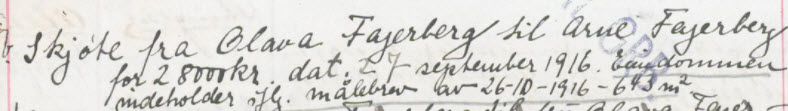 Skjöte fra Olava Fagerberg til Arne Fagerberg
for 28000kr. dat. 27 september 1916. Eiendommen
indeholder iflg. målebrev av 26-10-1916 - 643 m²